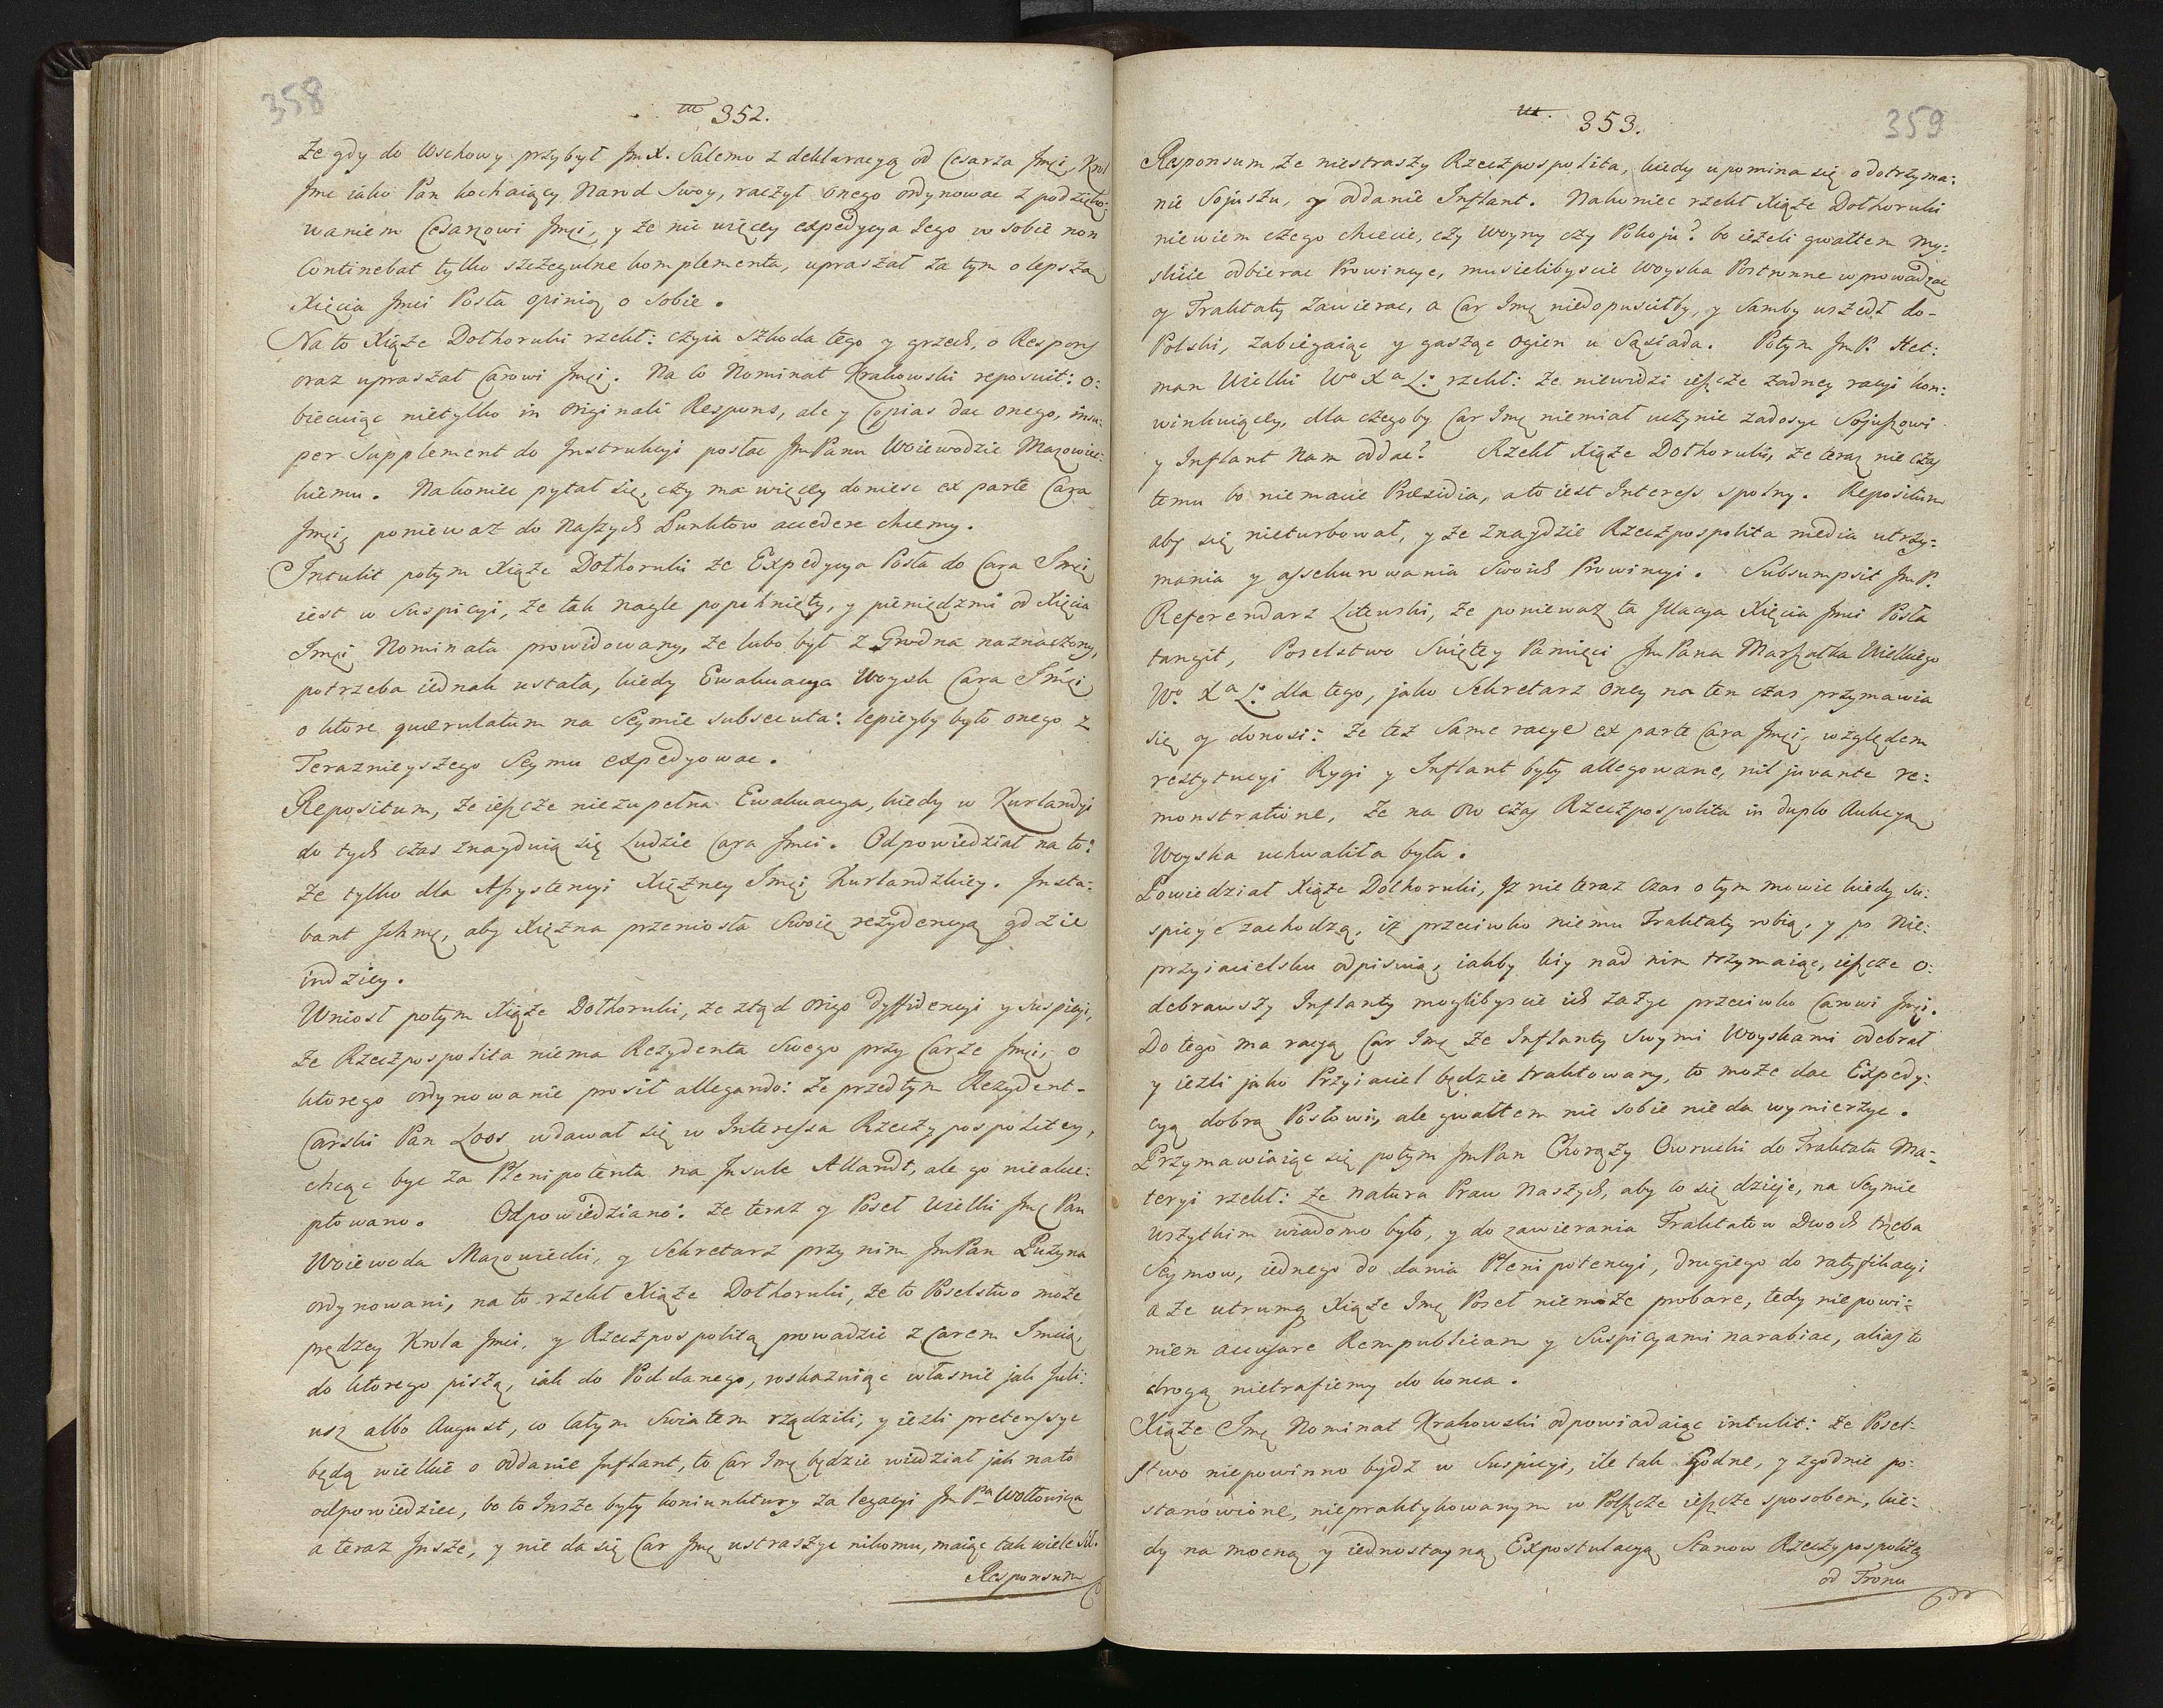 358
352.
że gdy do Wschowy przybył Jm X. Salerno z deklaracyą od Cesarza Jmci, Krol
Jmc iako Pan kochaiący Narod Swoy, raczył onego ordynowac z podzięko:
waniem Cesarzowi Jmci, y że nic więcey expedycya Jego w sobie non
Continebat tylko szczegulne komplementa, upraszał za tym o lepszą
Xięcia Jmci Posła opinią o sobie.
Na to Xiąże Dołhoruki rzekł: czyia szkoda tego y grzech, o Respons
oraz upraszał Carowi Jmci. Na co Nominat Krakowski reposuit: o:
biecuiąc nietylko in originali Respons, ale y Copias dac onego, insu:
per Supplement do Instrukcyi posłac Jm Panu Woiewodzie Mazowiec:
kiemu. Nakoniec pytał się, czy ma więcey donieść ex parte Cara
Jmci, ponieważ do Naszych Punktow accedere chcemy.
Intulit potym Xiąże Dołhoruki że Expedycya Posła do Cara Jmci
iest w Suspicyi, że tak nagle popchnięty, y pieniędzmi od Xięcia
Jmci Nominata prowidowany, że lubo był z Grodna naznaczony,
potrzeba iednak ustała, kiedy Ewakuacya Woysk Cara Jmci
o ktore querulatum na Seymie subsecuta: lepieyby było onego z
Teraznieyszego Seymu expedyowac.
Repositum, że ieszcze niezupełna Ewakuacya, kiedy w Kurlandyi
do tych czas znayduią się Ludzie Cara Jmci. Odpowiedział na to:
że tylko dla Assystencyi Xiężney Jmci Kurlandzkiey. Insta:
bant Ichmc, aby Xiężna przeniosła Swoię rezydencyą gdzie
indziey.
Wniosł potym Xiąże Dołhoruki, że ztąd origo dyffidencyi y Suspicyi,
że Rzeczpospolita niema Rezydenta Swego przy Carze Jmci, o
ktorego ordynowanie prosił allegando: że przedtym Rezydent
Carski Pan Loos wdawał się w Interessa Rzeczypospolitey,
chcąc byc za Plenipotenta na Insule Allandt, ale go nieakce:
ptowano. Odpowiedziano: że teraz y Poseł Wielki Jmc Pan
Woiewoda Mazowiecki, y Sekretarz przy nim Jm Pan Puzyna
ordynowani, na to rzekł Xiąże Dołhoruki, że to Poselstwo może
prędzey Krola Jmci, y Rzeczpospolitą prowadzic z Carem Jmcią,
do ktorego piszą, iak do Poddanego, roskazuiąc własnie jak Juli:
usz albo August, co całym Swiatem rządzili, y iezli pretensye
będą wielkie o oddanie Inflant, to Car Jmc będzie wiedział jak na to
odpowiedziec, bo to Insze były koniunktury za legacyi Jm Pa Wołłowicza
a teraz Insze, y nie da się Car Jmc ustraszyc nikomu, maiąc tak wiele sił.
Responsum
359
353.
Responsum że niestraszy Rzeczpospolita, kiedy upomina się o dotrzyma:
nie Sojuszu, y oddanie Inflant. Nakoniec rzekł Xiąże Dołhoruki
niewiem czego chcecie, czy Woyny czy Pokoju? bo ieżeli gwałtem my:
slicie odbierac Prowincye, musielibyscie Woyska Postronne wprowadzac
y Traktaty zawierac, a Car Jmc niedopusciłby, y Samby wszedł do
Polski, zabiegaiąc y gasząc ogien u Sąsiada. Potym Jm P. Het:
man Wielki Wo Xa L: rzekł: że niewidzi ieszcze żadney racyi kon:
winkuiącey, dla czegoby Car Jmc niemiał uczynic zadosyc Sojuszowi
y Inflant Nam oddac? Rzekł Xiąże Dołhoruki, że teraz nie czas
temu bo niemacie Præsidia, a to iest Interess spolny. Repositum
aby się nieturbował, y że znaydzie Rzeczpospolita media utrzy:
mania y assekurowania Swoich Prowincyi. Subsumpsit Jm P.
Referendarz Litewski, że ponieważ ta Illacya Xięcia Jmci Posła
tangit, Poselstwo Swiętey Pamięci Jm Pana Marszałka Wielkiego
Wo. Xa L: dla tego, jako Sekretarz oney na ten czas przymawia
się y donosi: że też Same racye ex parte Cara Jmci, względem
restytucyi Rygi y Inflant były allegowane, nil juvante re:
monstratione, że na ow czas Rzeczpospolita in duplo Aukcyą
Woyska uchwaliła była.
Powiedział Xiąże Dołhoruki, Iz nie teraz czas o tym mowic kiedy Su:
spicye zachodzą, iż przeciwko niemu Traktaty robią, y po Nie:
przyiacielsku odpisuią, iakby kiy nad nim trzymaiąc, ieszcze o:
debrawszy Inflanty moglibyscie ich zażyc przeciwko Carowi Jmci.
Do tego ma racyą Car Jmc że Inflanty Swymi Woyskami odebrał
y iezli jako Przyiaciel będzie traktowany, to może dac Expedy:
cyą dobrą Posłowi, ale gwałtem nic sobie nieda wymierzyc.
Przymawiaiąc się potym Jm Pan Chorąży Owrucki do Traktatu Ma:
teryi rzekł: że Natura Praw Naszych, aby co się dzieje, na Seymie
wszytkim wiadomo było, y do zawierania Traktatow Dwoch trzeba
Seymow, iednego do dania Plenipotencyi, drugiego do ratyfikacyi
a że utrumq Xiąże Jmc Poseł niemoże probare, tedy niepowi:
nien accusare Rempublicam y Suspicyami narabiac, alias tą
drogą nietrafiemy do konca.
Xiąże Jmc Nominat Krakowski odpowiadaiąc intulit: że Posel:
stwo niepowinno bydz w Suspicyi, ile tak Godne, y zgodnie po:
stanowione, niepraktykowanym w Polszcze ieszcze sposobem, kie:
dy na mocną y iednostayną Expostulacyą Stanow Rzeczypospolitey
od Tronu